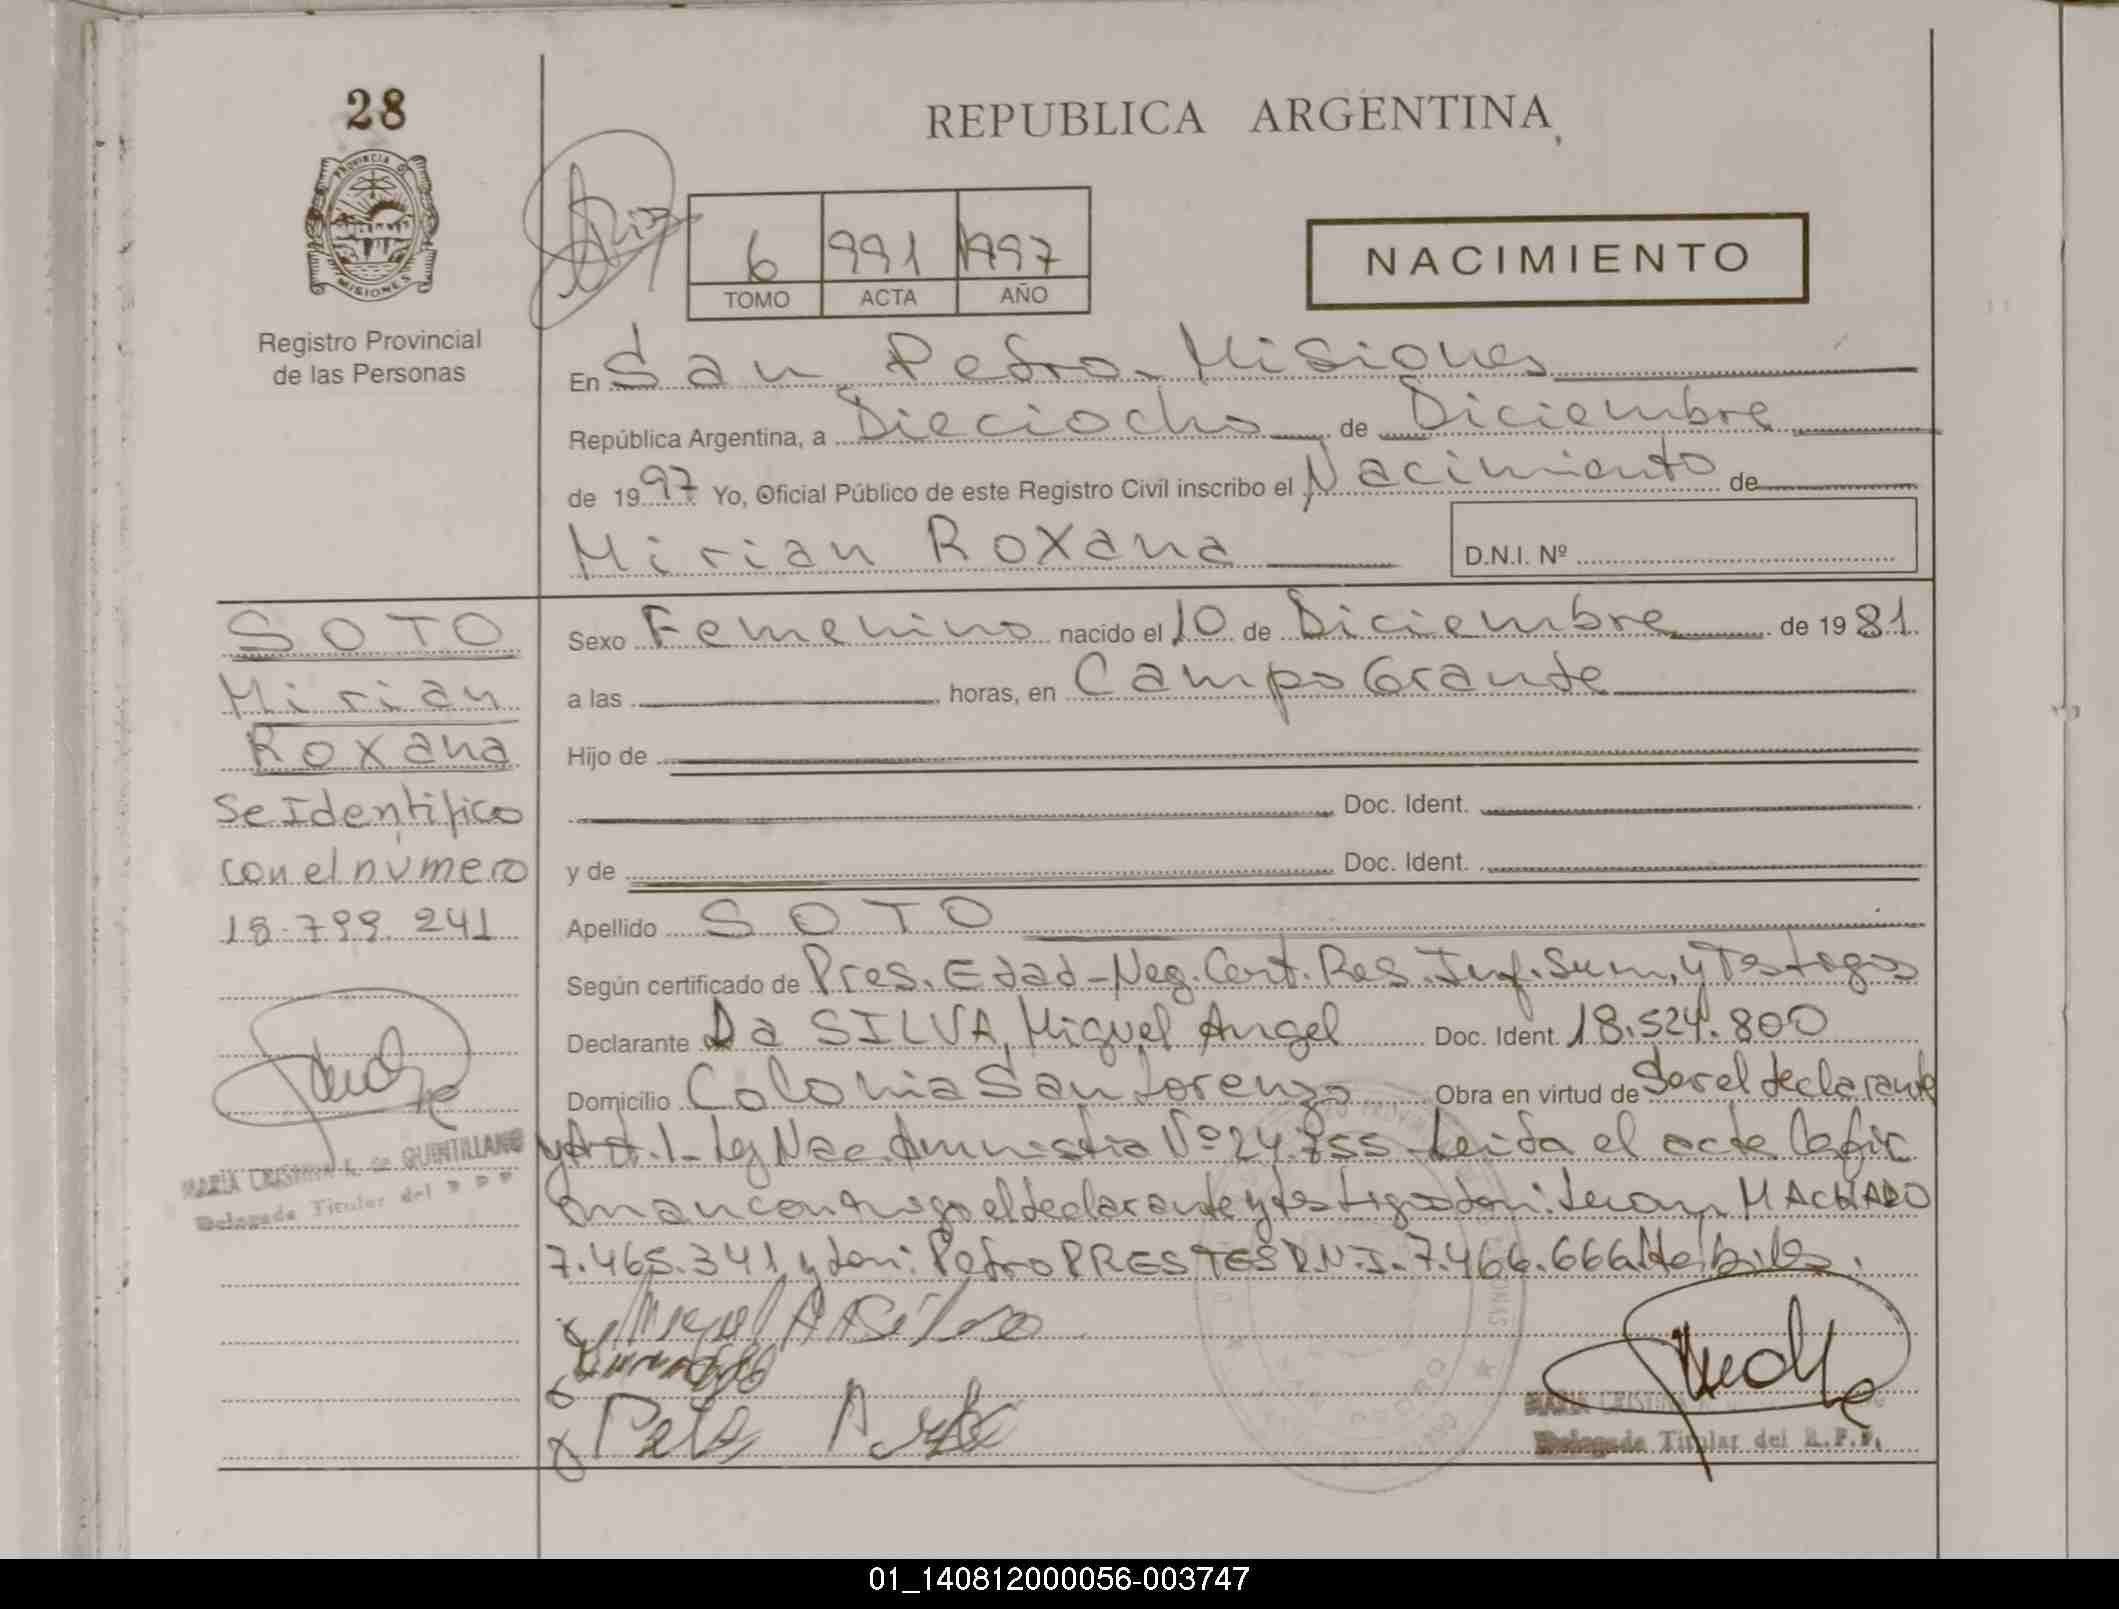 28
REPUBLICA ARGENTINA
PROVINCIA DE
MISIONES
Registro Provincial
de las Personas
6 991 1997
TOMO ACTA AÑO
NACIMIENTO
En San Pedro - Misiones
República Argentina, a Dieciocho de Diciembre
de 1997 Yo, Oficial Público de este Registro Civil inscribo el Nacimiento de
Mirian Roxana D.N.I. Nº
SOTO
Mirian
Roxana
Se Identifico
con el número
18.799.241
MARIA CRISTINA K. de QUINTILLANO
Delegada Titular del R.P.P.
Sexo Femenino nacido el 10 de Diciembre de 1981
a las horas, en Campo Grande
Hijo de
Doc. Ident.
y de Doc. Ident.
Apellido SOTO
Según certificado de Pres. Edad - Neg. Cert. Res. Inf. Sum. y Testigos
Declarante Da SILVA, Miguel Angel Doc. Ident. 18.524.800
Domicilio Colonia San Lorenzo Obra en virtud de Ser el declarante
y Art. 1 - Ley Nac. Amnistia Nº 24.755 - Leida el acta la fir
man conmigo el declarante y testigos don: MACHADO
7.465.341 y don: Pedro PRESTES D.N.I. 7.466.666 Habiles.
Miguel A Silva
MARIA CRISTINA
Delegada Titular del R.P.P.
SAN PEDRO
01_140812000056-003747